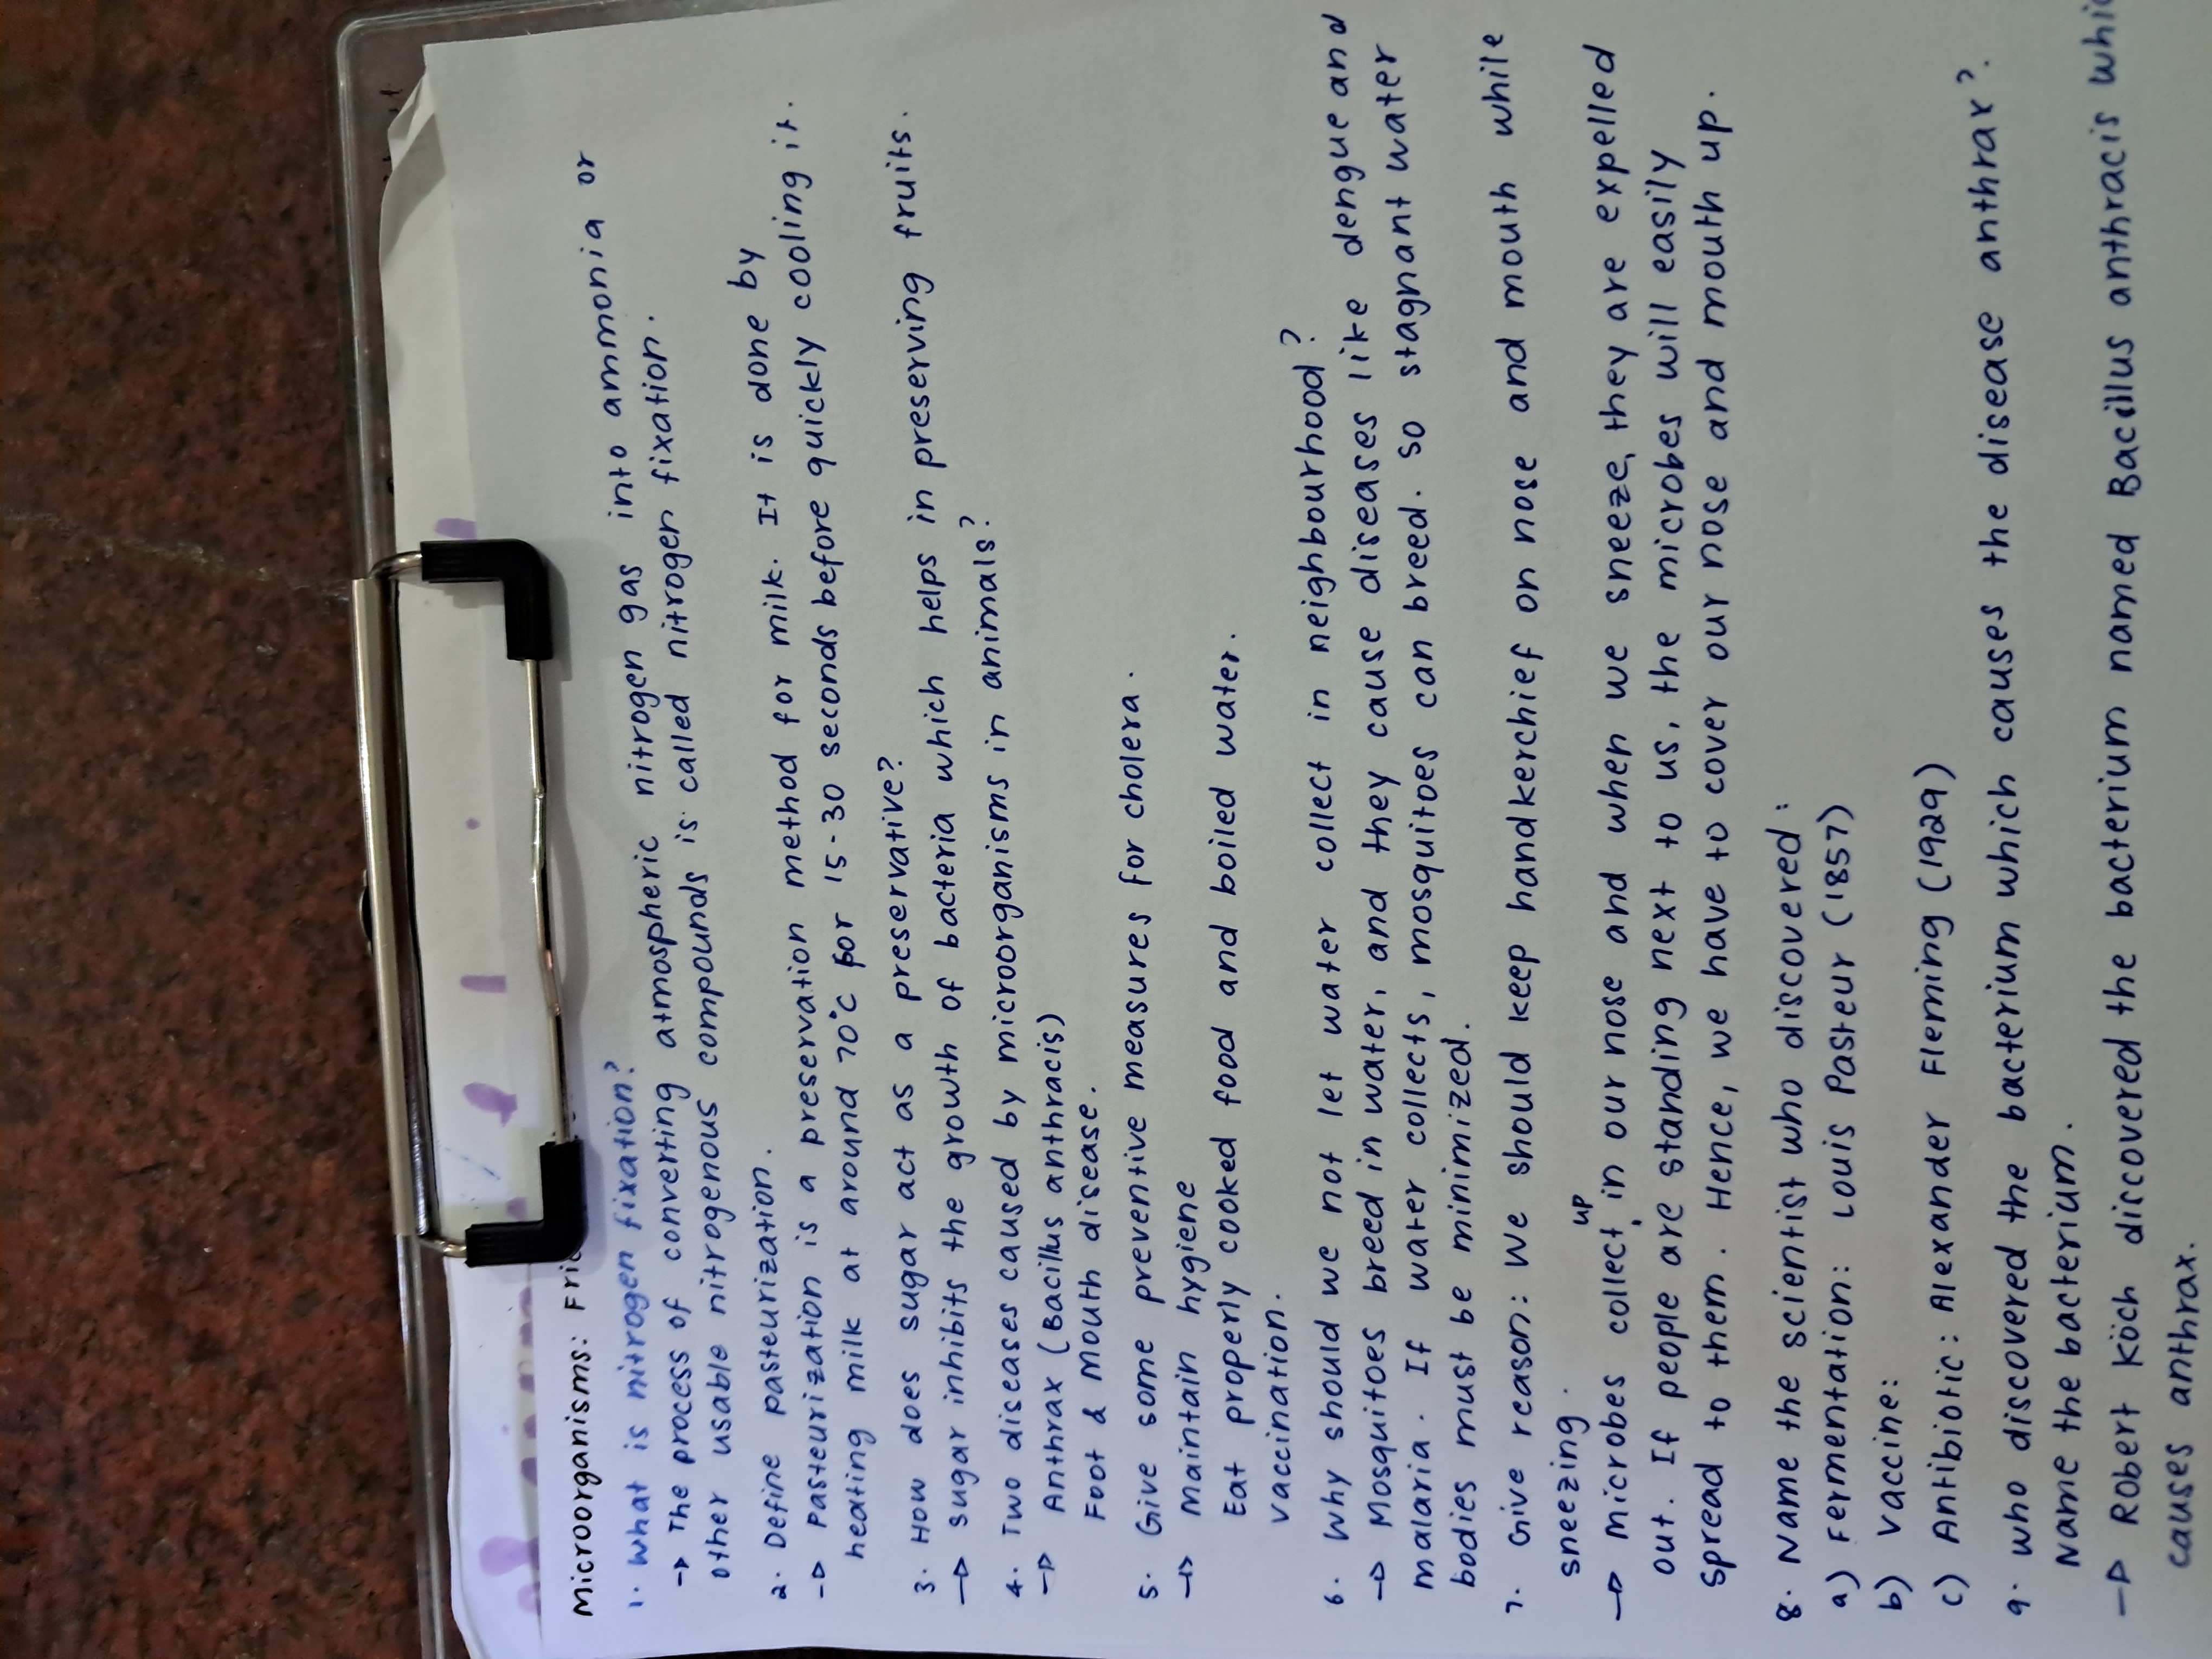 Microorganisms: Frie
1. What is nitrogen fixation?
→ The process of converting atmospheric nitrogen gas into ammonia or
other usable nitrogenous compounds is called nitrogen fixation.
2. Define pasteurization.
→ Pasteurization is a preservation method for milk. It is done by
heating milk at around 70°C for 15-30 seconds before quickly cooling it.
3. How does sugar act as a preservative?
→ Sugar inhibits the growth of bacteria which helps in preserving fruits.
4. Two diseases caused by microorganisms in animals?
→ Anthrax (Bacillus anthracis)
Foot & Mouth disease.
5. Give some preventive measures for cholera.
→ Maintain hygiene
Eat properly cooked food and boiled water.
Vaccination.
6. Why should we not let water collect in neighbourhood?
→ Mosquitoes breed in water, and they cause diseases like dengue and
malaria. If water collects, mosquitoes can breed. So stagnant water
bodies must be minimized.
7. Give reason: We should keep handkerchief on nose and mouth while
sneezing.
→ Microbes collect up in our nose and when we sneeze, they are expelled
out. If people are standing next to us, the microbes will easily
spread to them. Hence, we have to cover our nose and mouth up.
8. Name the scientist who discovered:
a) Fermentation: Louis Pasteur (1857)
b) Vaccine:
c) Antibiotic: Alexander Fleming (1929)
9. Who discovered the bacterium which causes the disease anthrax?
Name the bacterium.
→ Robert Köch discovered the bacterium named Bacillus anthracis whic
causes anthrax.